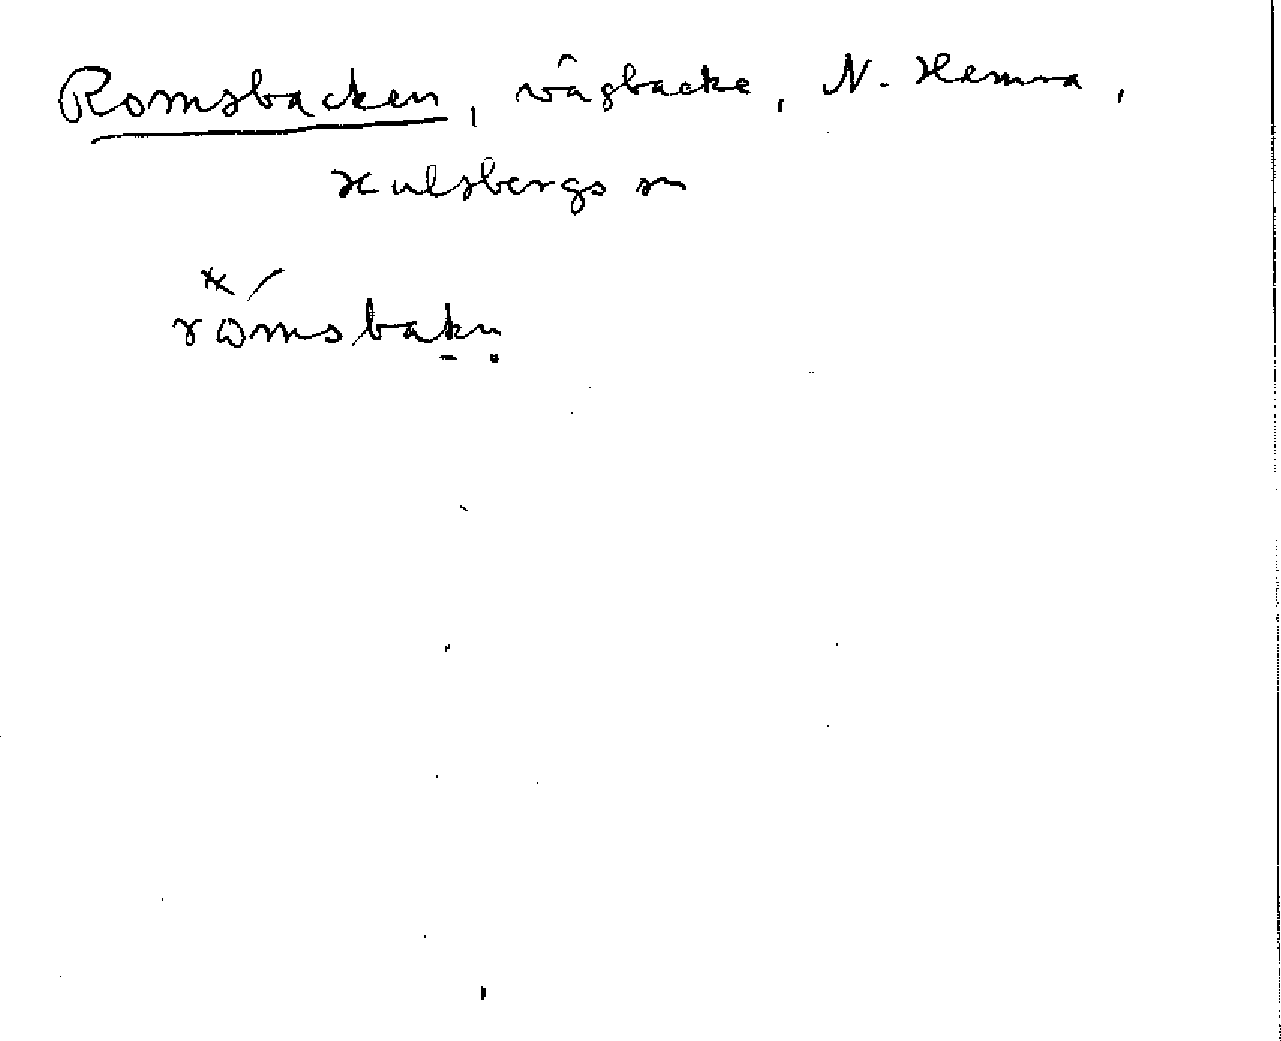 Romsbacken, vägbacke, N. Hemra,
Hulsbergs sn
römsbakn